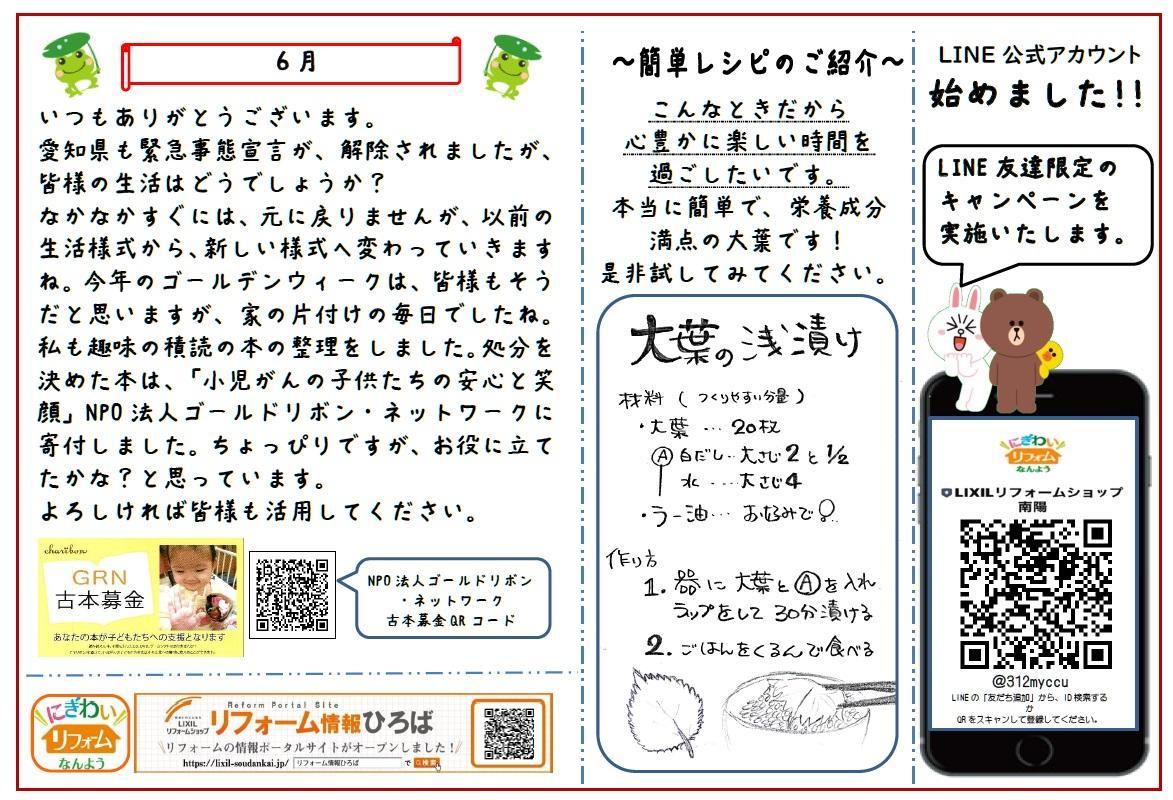 6月
いつもありがとうございます。
愛知県も緊急事態宣言が、解除されましたが、
皆様の生活はどうでしょうか？
なかなかすぐには、元に戻りませんが、以前の
生活様式から、新しい様式へ変わっていきます
ね。今年のゴールデンウィークは、皆様もそう
だと思いますが、家の片付けの毎日でしたね。
私も趣味の積読の本の整理をしました。処分を
決めた本は、「小児がんの子供たちの安心と笑
顔」NPO法人ゴールドリボン・ネットワークに
寄付しました。ちょっぴりですが、お役に立て
たかな？と思っています。
よろしければ皆様も活用してください。
charibon
GRN
古本募金
あなたの本が子どもたちへの支援となります
NPO法人ゴールドリボン
・ネットワーク
古本募金QRコード
にぎわい
リフォーム
なんよう
Reform Portal Site
LIXIL
リフォームショップ
リフォーム情報ひろば
リフォームの情報ポータルサイトがオープンしました！
https://lixil-soudankai.jp/ リフォーム情報ひろば で 検索
～簡単レシピのご紹介～
こんなときだから
心豊かに楽しい時間を
過ごしたいです。
本当に簡単で、栄養成分
満点の大葉です！
是非試してみてください。
大葉の浅漬け
材料（つくりやすい分量）
・大葉 … 20枚
Ⓐ白だし‥大さじ2と1/2
水 …大さじ4
・ラー油… お好みで
作り方
1. 器に大葉とⒶを入れ
ラップをして30分漬ける
2. ごはんをくるんで食べる
LINE公式アカウント
始めました!!
LINE友達限定の
キャンペーンを
実施いたします。
にぎわい
リフォーム
なんよう
LIXILリフォームショップ
南陽
@312myccu
LINEの「友だち追加」から、ID検索する
か
QRをスキャンして登録してください。